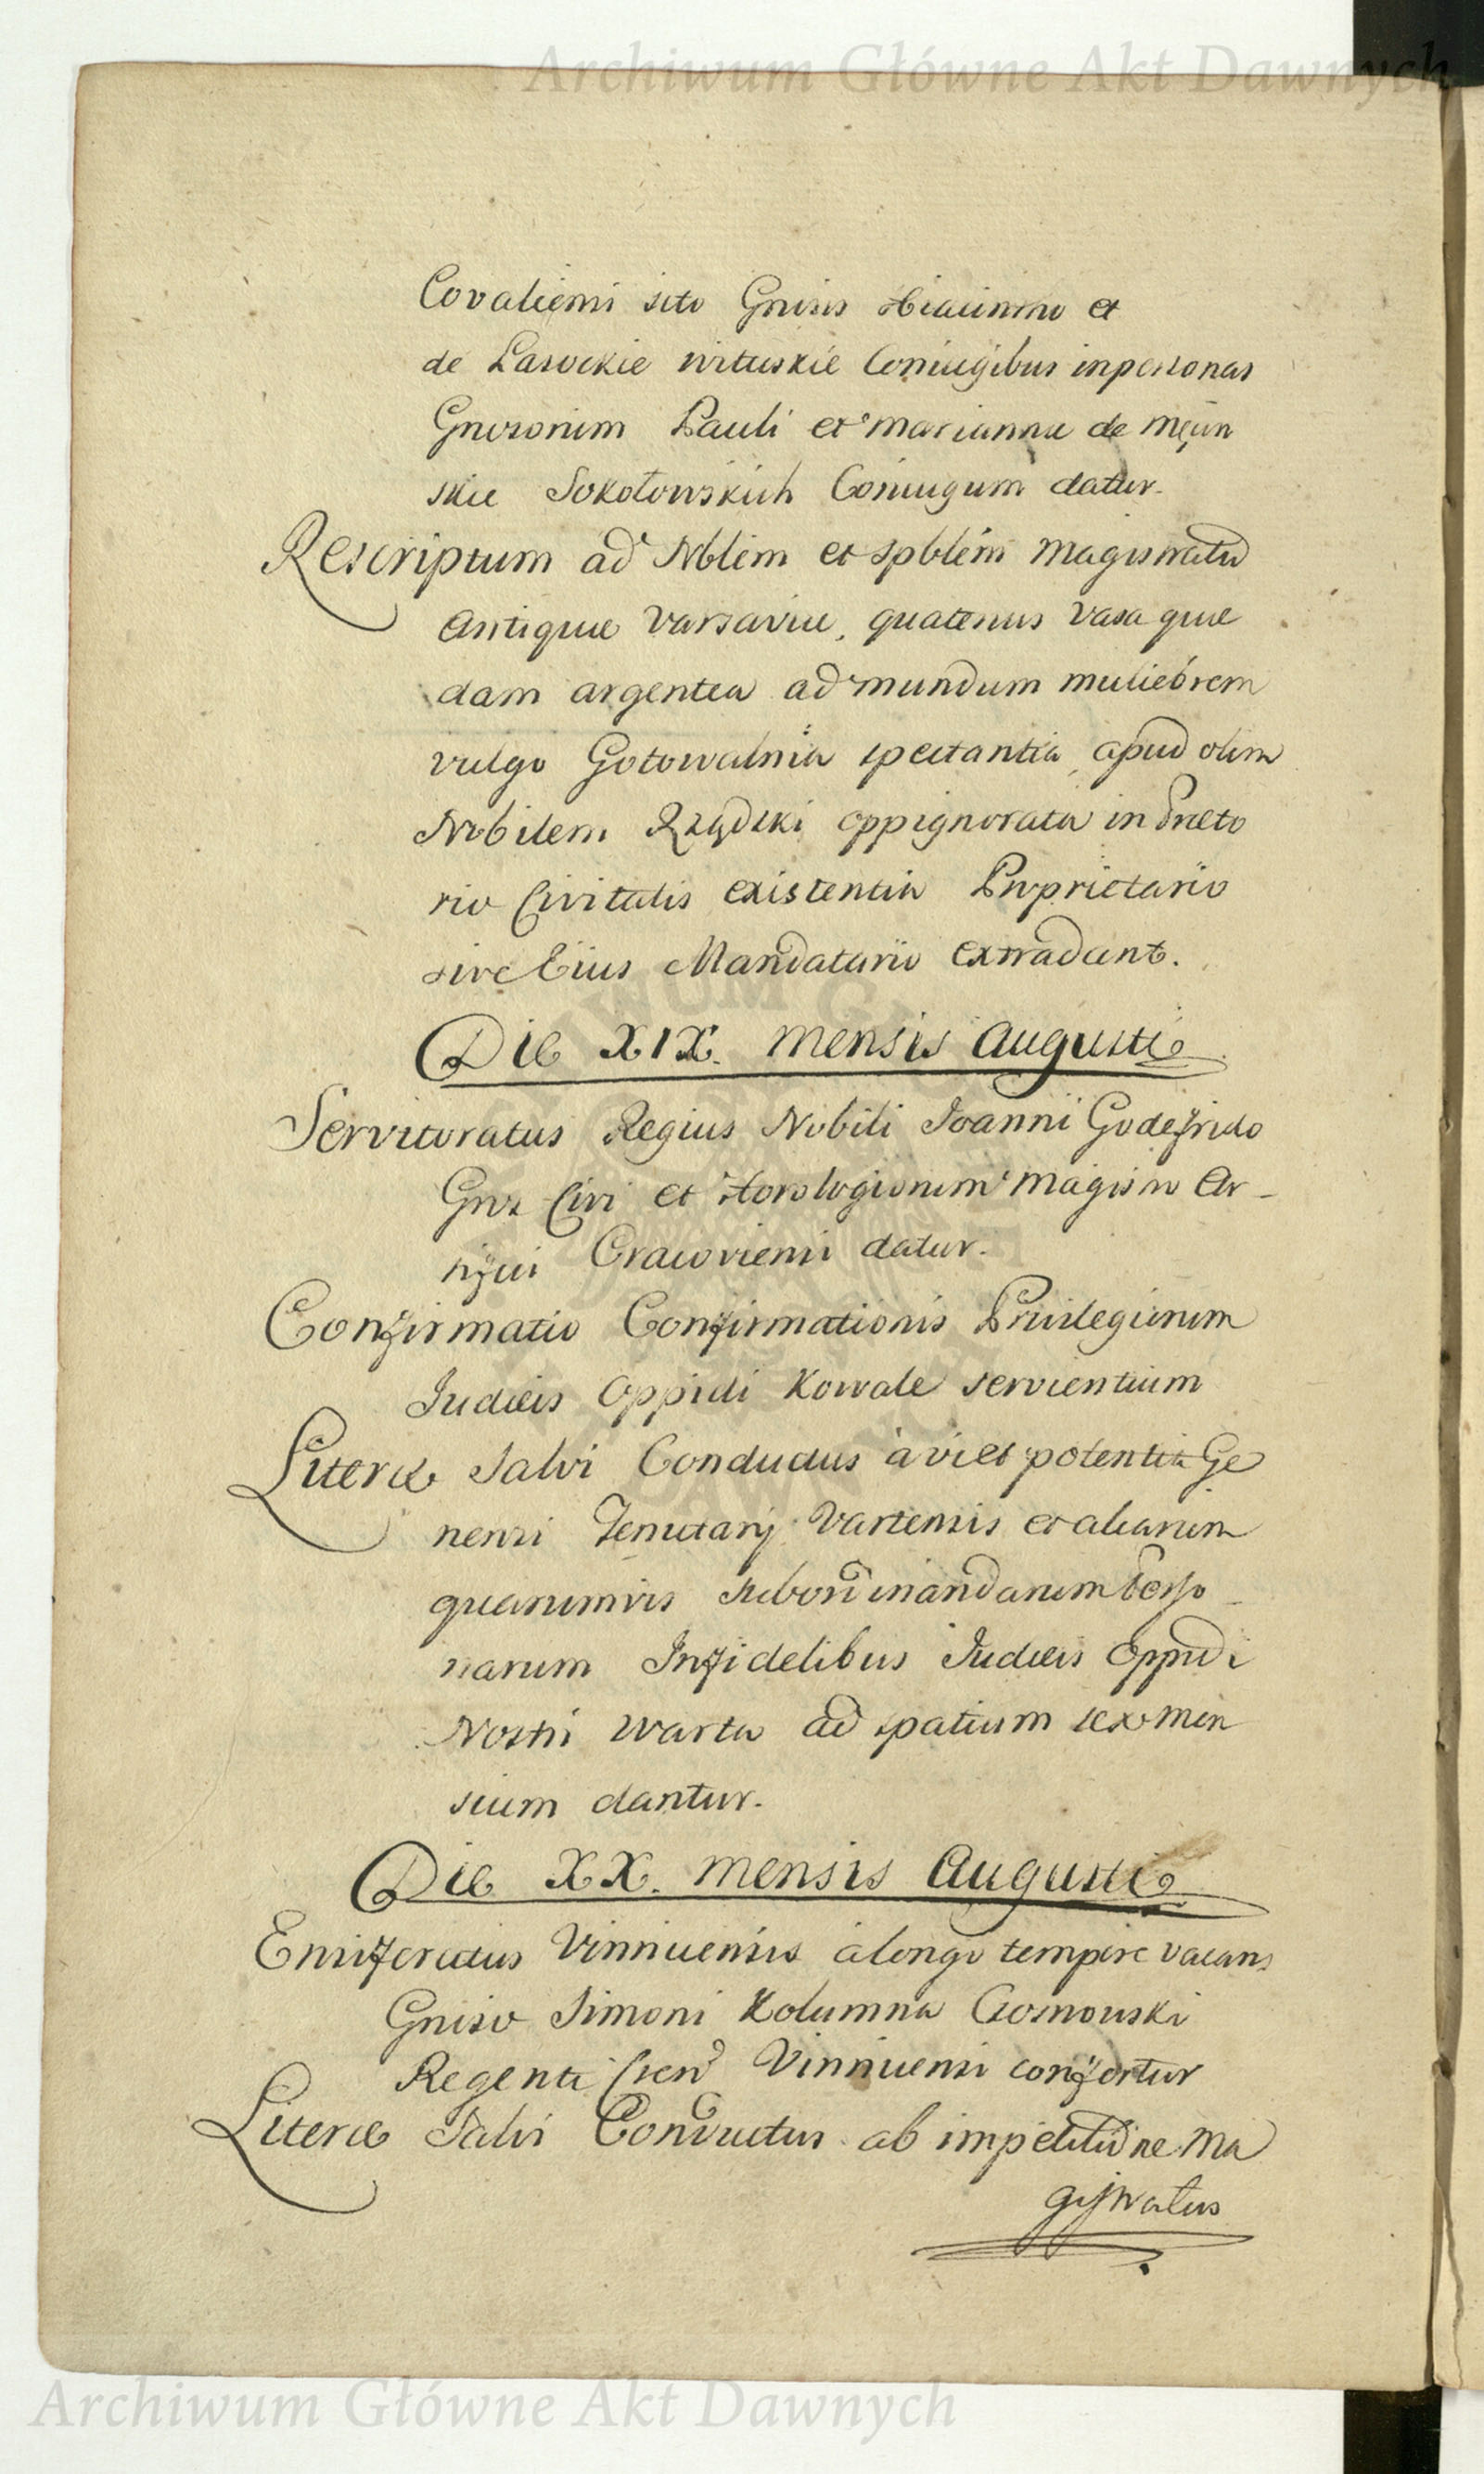 Archiwum Główne Akt Dawnych
Covaliensi sito Gnisis Hiacintho et
de Lasockie Wituskie Coniugibus in personas
Gnerorum Pauli et Mariannae de Męcin
skie Sokołowskich Coniugum datur.
Rescriptum ad Nblem et Spblem Magistratu
Antiquae Varsaviae, quatenus Vasa quae
dam argentea ad mundum muliebrem
vulgo Gotowalnia spectantia, apud olim
Nobilem Rządzki oppignorata in Praeto
rio Civitatis existentia Proprietario
sive Eius Mandatario extradant.
Die XIX. Mensis Augusti
Servitoratus Regius Nobili Ioanni Godefrido
Civi et Horologiorum Magistro Ar-
tifici Cracoviensi datur.
Confirmatio Confirmationis Privilegiorum
Iudaeis Oppidi Kowale servientium
Literae Salvi Conductus à vi et potentia Ge
nensi Tenutarij Vartensis et aliarum
quarumvis subordinandarum Perso
narum Infidelibus Iudaeis Oppidi
Nostri Warta ad spatium sex men
sium dantur.
Die XX. Mensis Augusti
Ensiferatus Vinnicensis à longo tempore vacans
Gniso Simoni Kolumna Czosnowski
Regenti Cren Vinnicensi confertur
Literae Salvi Conductus ab impetitione Ma
gistratus
Archiwum Główne Akt Dawnych